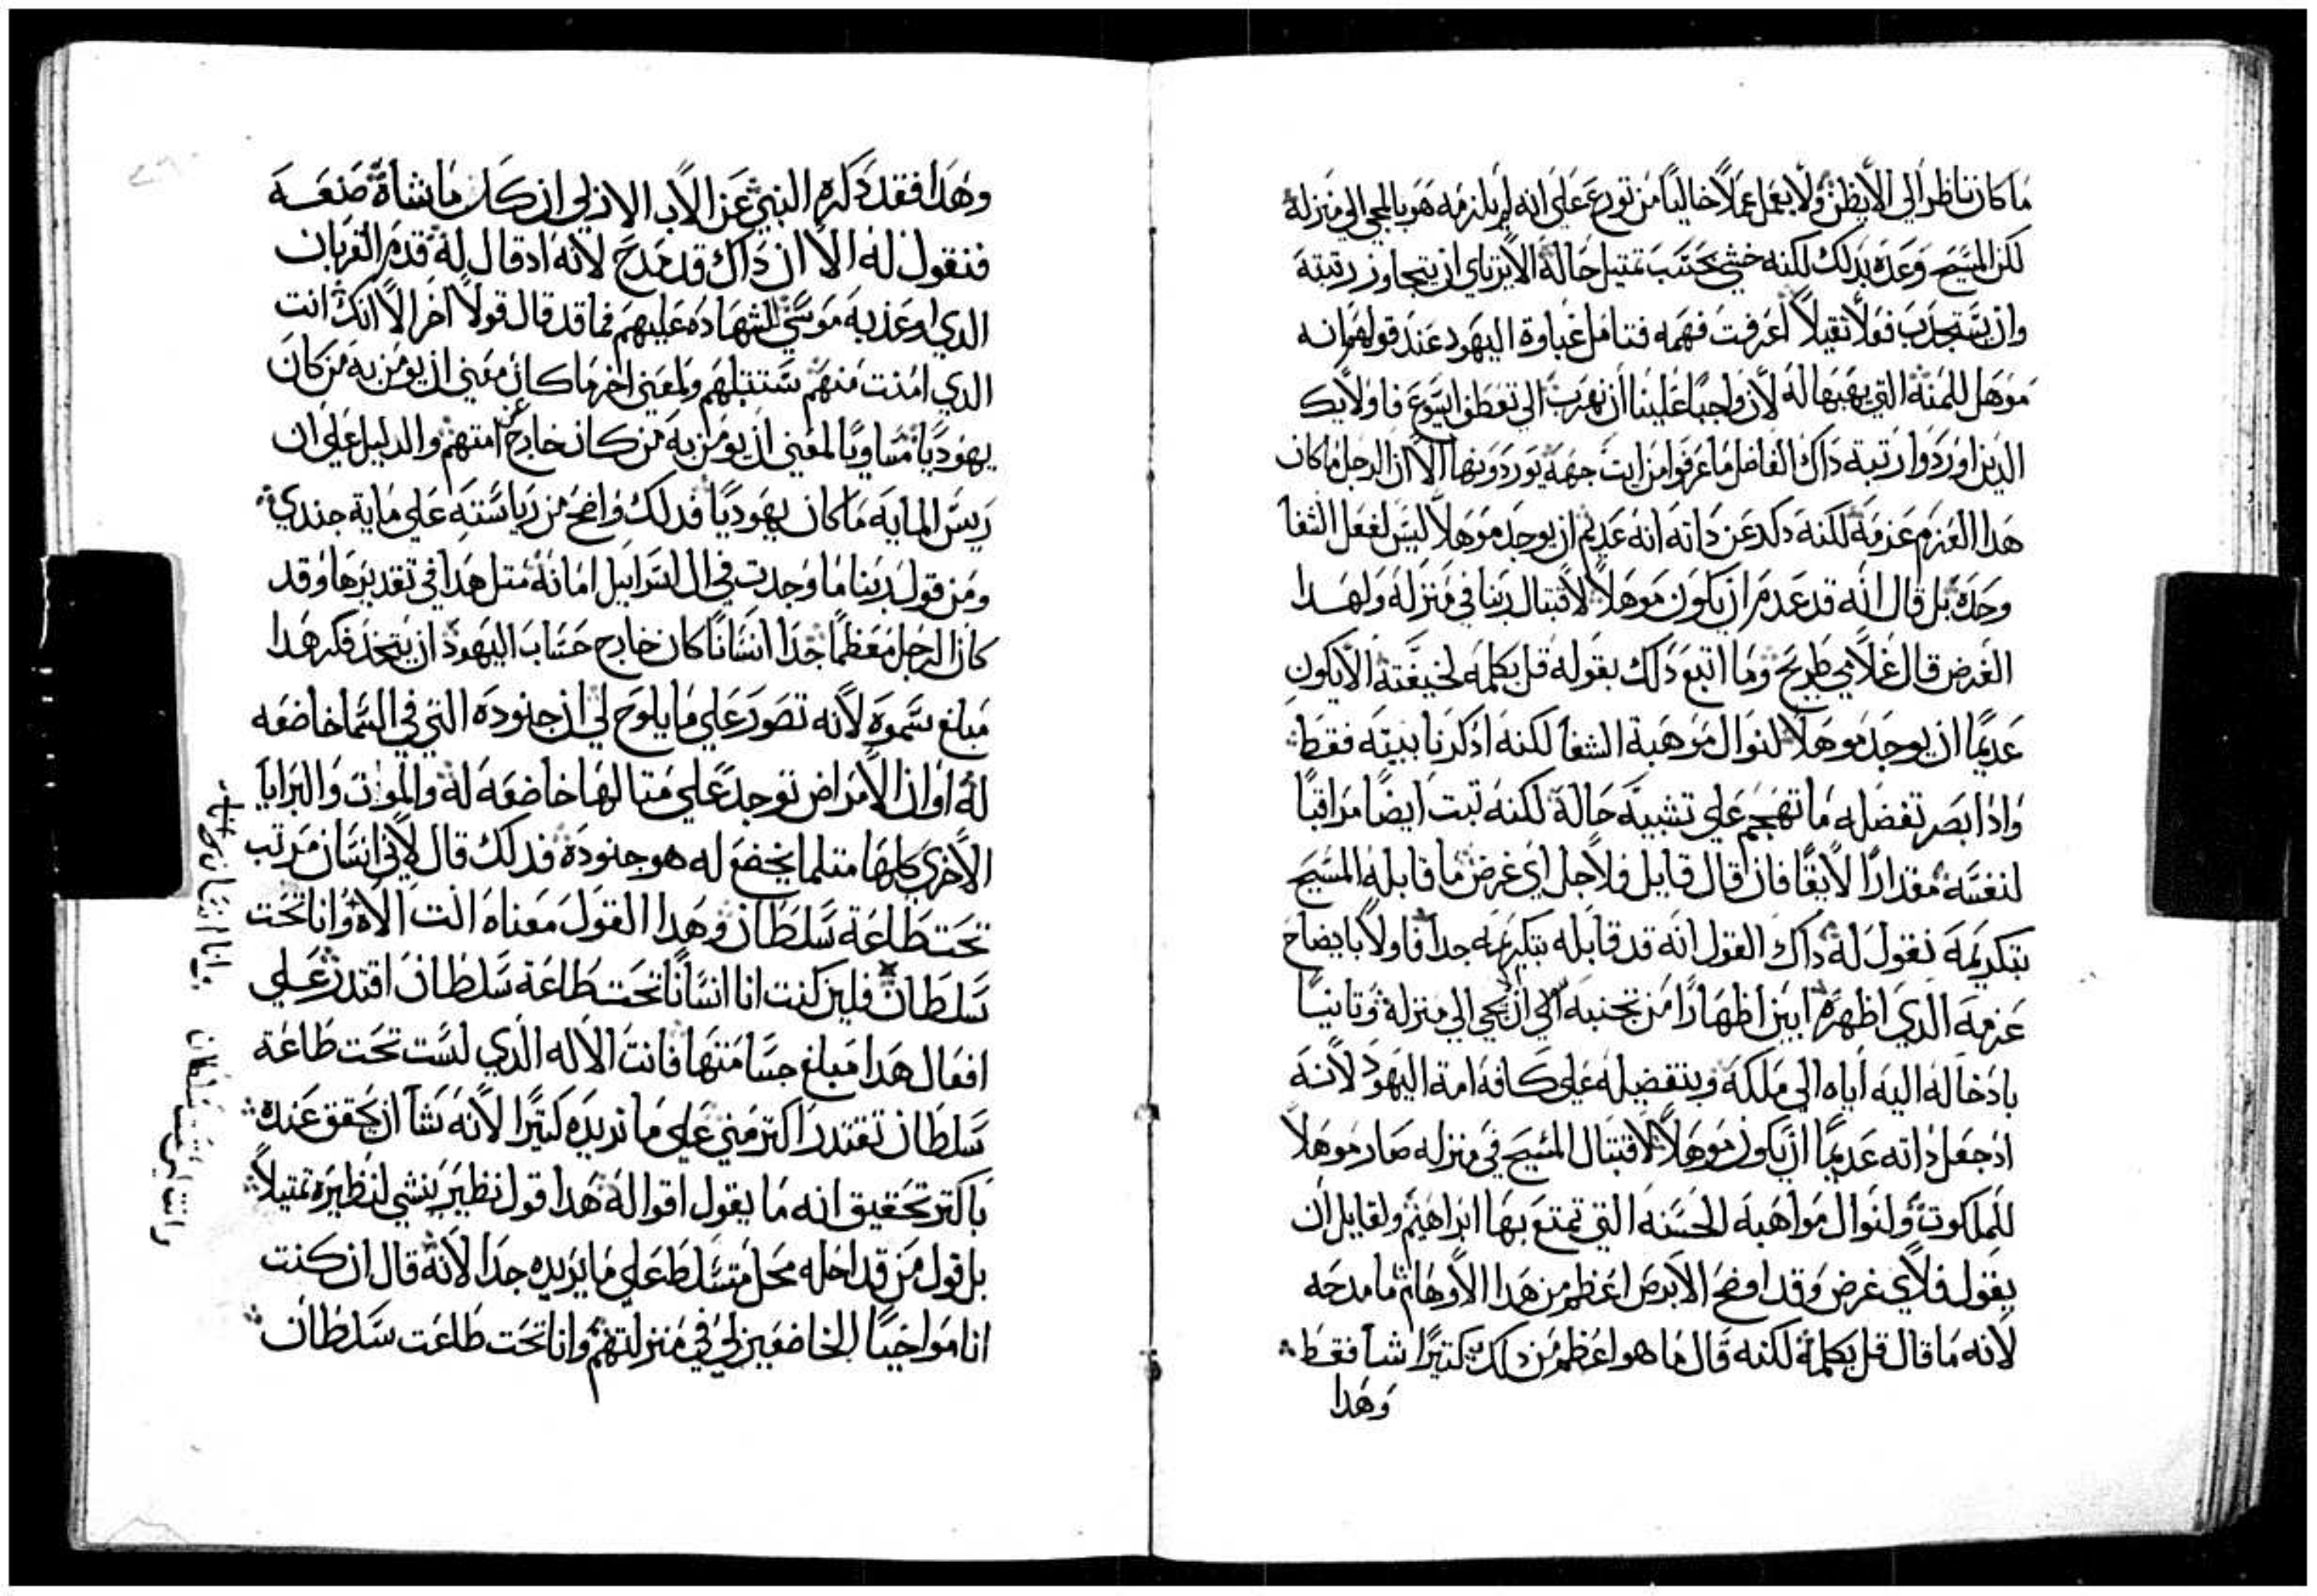 ما كان ناظرا الي الا يظن ولا يعمل عملا خاليا من تورع علي انه لم يلزمه هو بالمجي الي منزله
لكن المسيح وعده بدلك لكنه خشي بحسب تمتيل حاله الا يرتاي ان يتجاوز رتبته
وان يستجدب فولا تقيلا اعرفت فهمه فتامل غباوة اليهود عند قولهم انه
موهل للمنه التي يهبها له لان واجبا علينا ان نهرب الي تعطف ايسوع فاولايك
الدين اوردوا رتبة داك الفاضل ما عرفوا من ايت جهه يوردونها الا ان الرجل ما كان
هدا العزم عزمه لكنه دكر عن داته انه عديم ان يوجد موهلا ليس لفعل الشفا
وحده بل قال انه قد عدم ان يكون موهلا لاقتبال ربنا في منزله ولهدا
الغرض قال غلامي طريح وما اتبع دلك بقوله قل بكلمه لخيفته الا يكون
عديما ان يوجد موهلا لنوال موهبة الشفا لكنه ادكرنا ببيته فقط
وادا ابصر تفضله ما تهجم علي تشبيه حاله لكنه تبت ايضا مراقبا
لنفسه مقدارا لايقا فان قال قايل فلاجل اي غرض ما قابله المسيح
بتكريمه نقول له داك القول انه قد قابله بتكريمه جدا فاولا بايضاح
عزمه الدي اظهره ابين اظهارا من تجنبه الي ان يجي الي منزله وتانيا
بادخاله اليه اياه الي ملكه وبتفضيله علي كافة امة اليهود لانه
اد جعل داته عديما ان يكون موهلا لاقتبال المسيح في منزله صار موهلا
للملكوت ولنوال مواهبه الحسنه التي تمتع بها ابراهيم ولقايل ان
يقول فلاي غرض وقد اوضح الابرص اعظم من هدا الاوهام ما مدحه
لانه ما قال قل بكلمه لكنه قال ما هو اعظم من دلك كتيرا شا فقط
وهدا
وهدا فقد دكره النبي عن الاب الازلي ان كل ما يشاه صنعه
فنقول له الا ان داك قد مدح لانه اد قال له قدم القربان
الدي اوعز به موسي لشهاده عليهم فما قد قال قولا اخر الا انك انت
الدي امنت منهم ستنبلهم ولمعني اخر ما كان معني ان يومن به من كان
يهوديا مساويا لمعني ان يومن به من كان خارج عن امتهم والدليل علي ان
ريس المايه ما كان يهوديا فدلك واضح من رياسته علي ماية جندي
ومن قول ربنا ما وجدت في ال اسراييل امانه متل هدا في تقديرها وقد
كان الرجل معظما جدا انسانا كان خارج حساب اليهود ان يتخد فكر هدا
مبلغ سموه لانه تصور علي ما يلوح لي ان جنوده التي في السما خاضعه
له او ان الامراض توجد علي متالها خاضعه له والموت والبرايا
الاخري كلها متلما يخضع له هو جنوده فدلك قال لاني انسان مرتب
تحت طاعة سلطان وهدا القول معناه انت الاه وانا تحت
سلطان فلين كنت انا انسانا تحت طاعة سلطان اقتدر علي
افعال هدا مبلغ جسامتها فانت الاله الدي لست تحت طاعة
سلطان تقتدر اكتر مني علي ما تريده كتيرا لانه شا ان يحقق عنده
باكتر تحقيق انه ما يقول اقواله هدا قول نظير ينشي لنظيره تمتيلا
بل قول من قد احله محل متسلط علي ما يريده جدا لانه قال ان كنت
انا مواخيا للخاضعين لي في منزلتهم وانا تحت طاعت سلطان
وانا انسان تحت